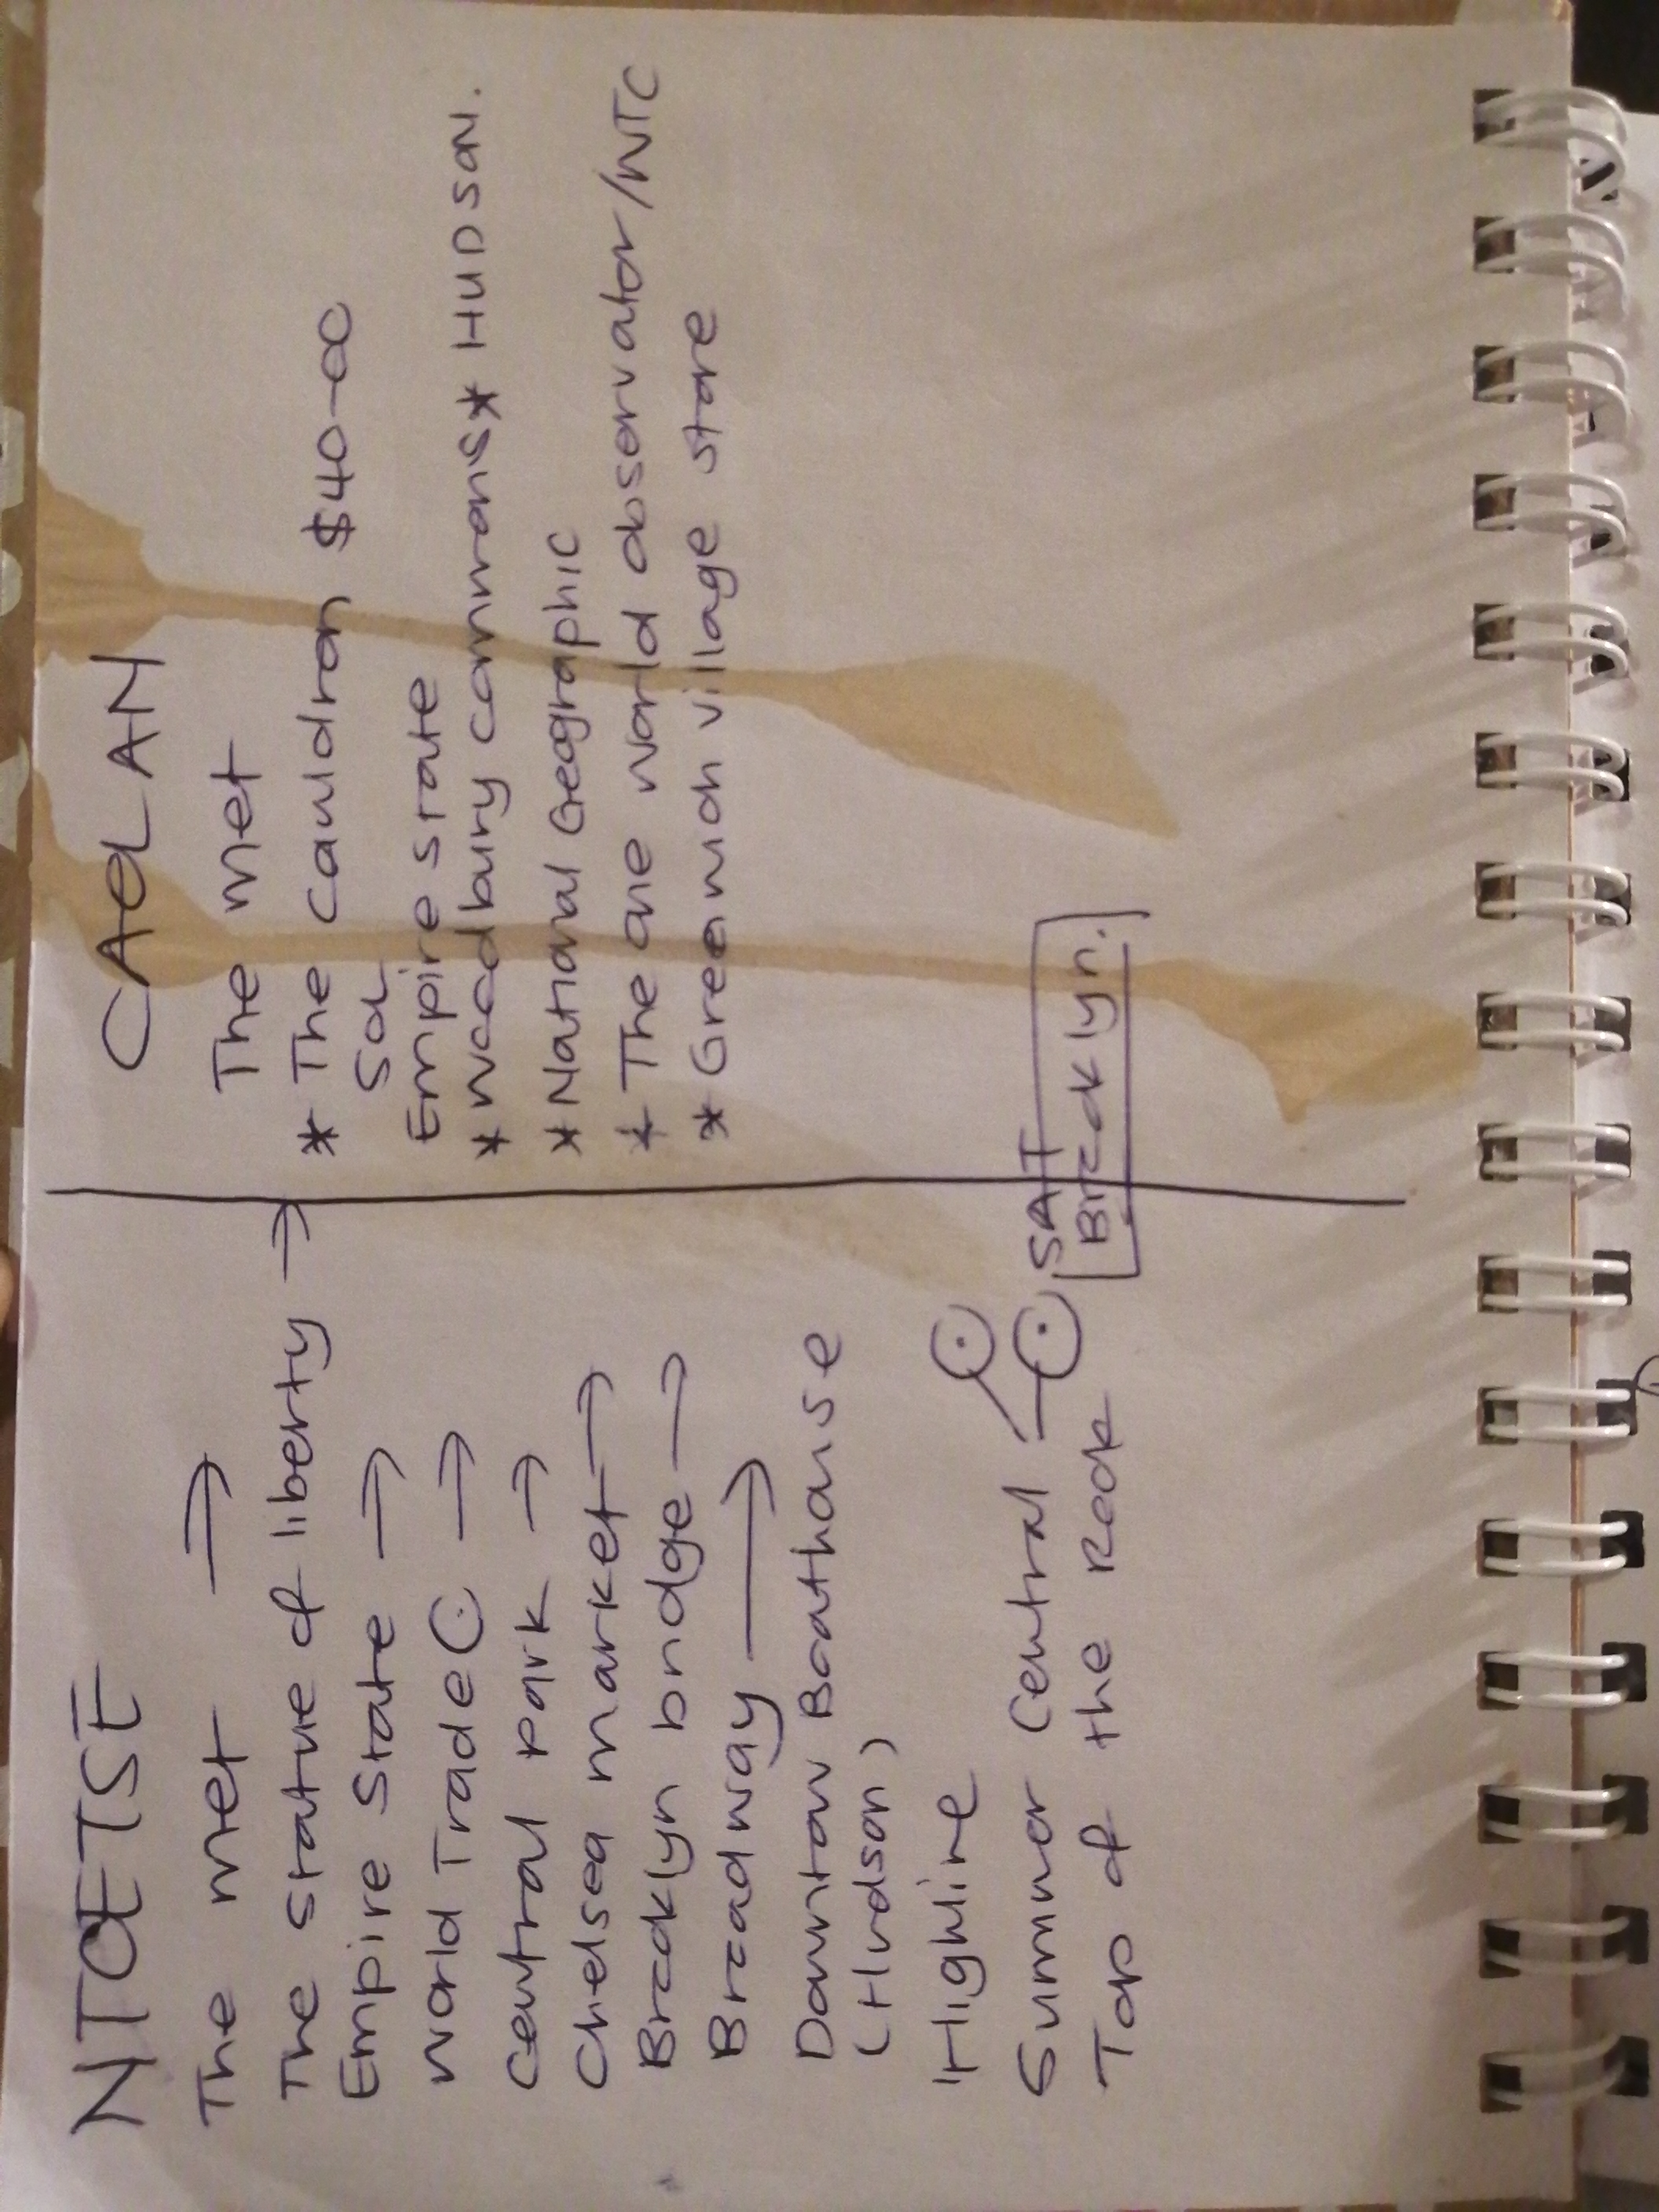 NTOETSE
The met →
The statue of liberty →
Empire State →
World Trade C →
Central Park →
Chelsea market →
Brooklyn bridge →
Broadway →
Downtow Boathouse
(Hudson)
Highline
Summer Central
Top of the Rock
SAT
Brooklyn.
CAOLAN
The met
* The cauldron $40-00
SOL
Empire state
* woodbury commons * HUDSON.
* National Geographic
* The one world observator/WTC
* Greenwich village store